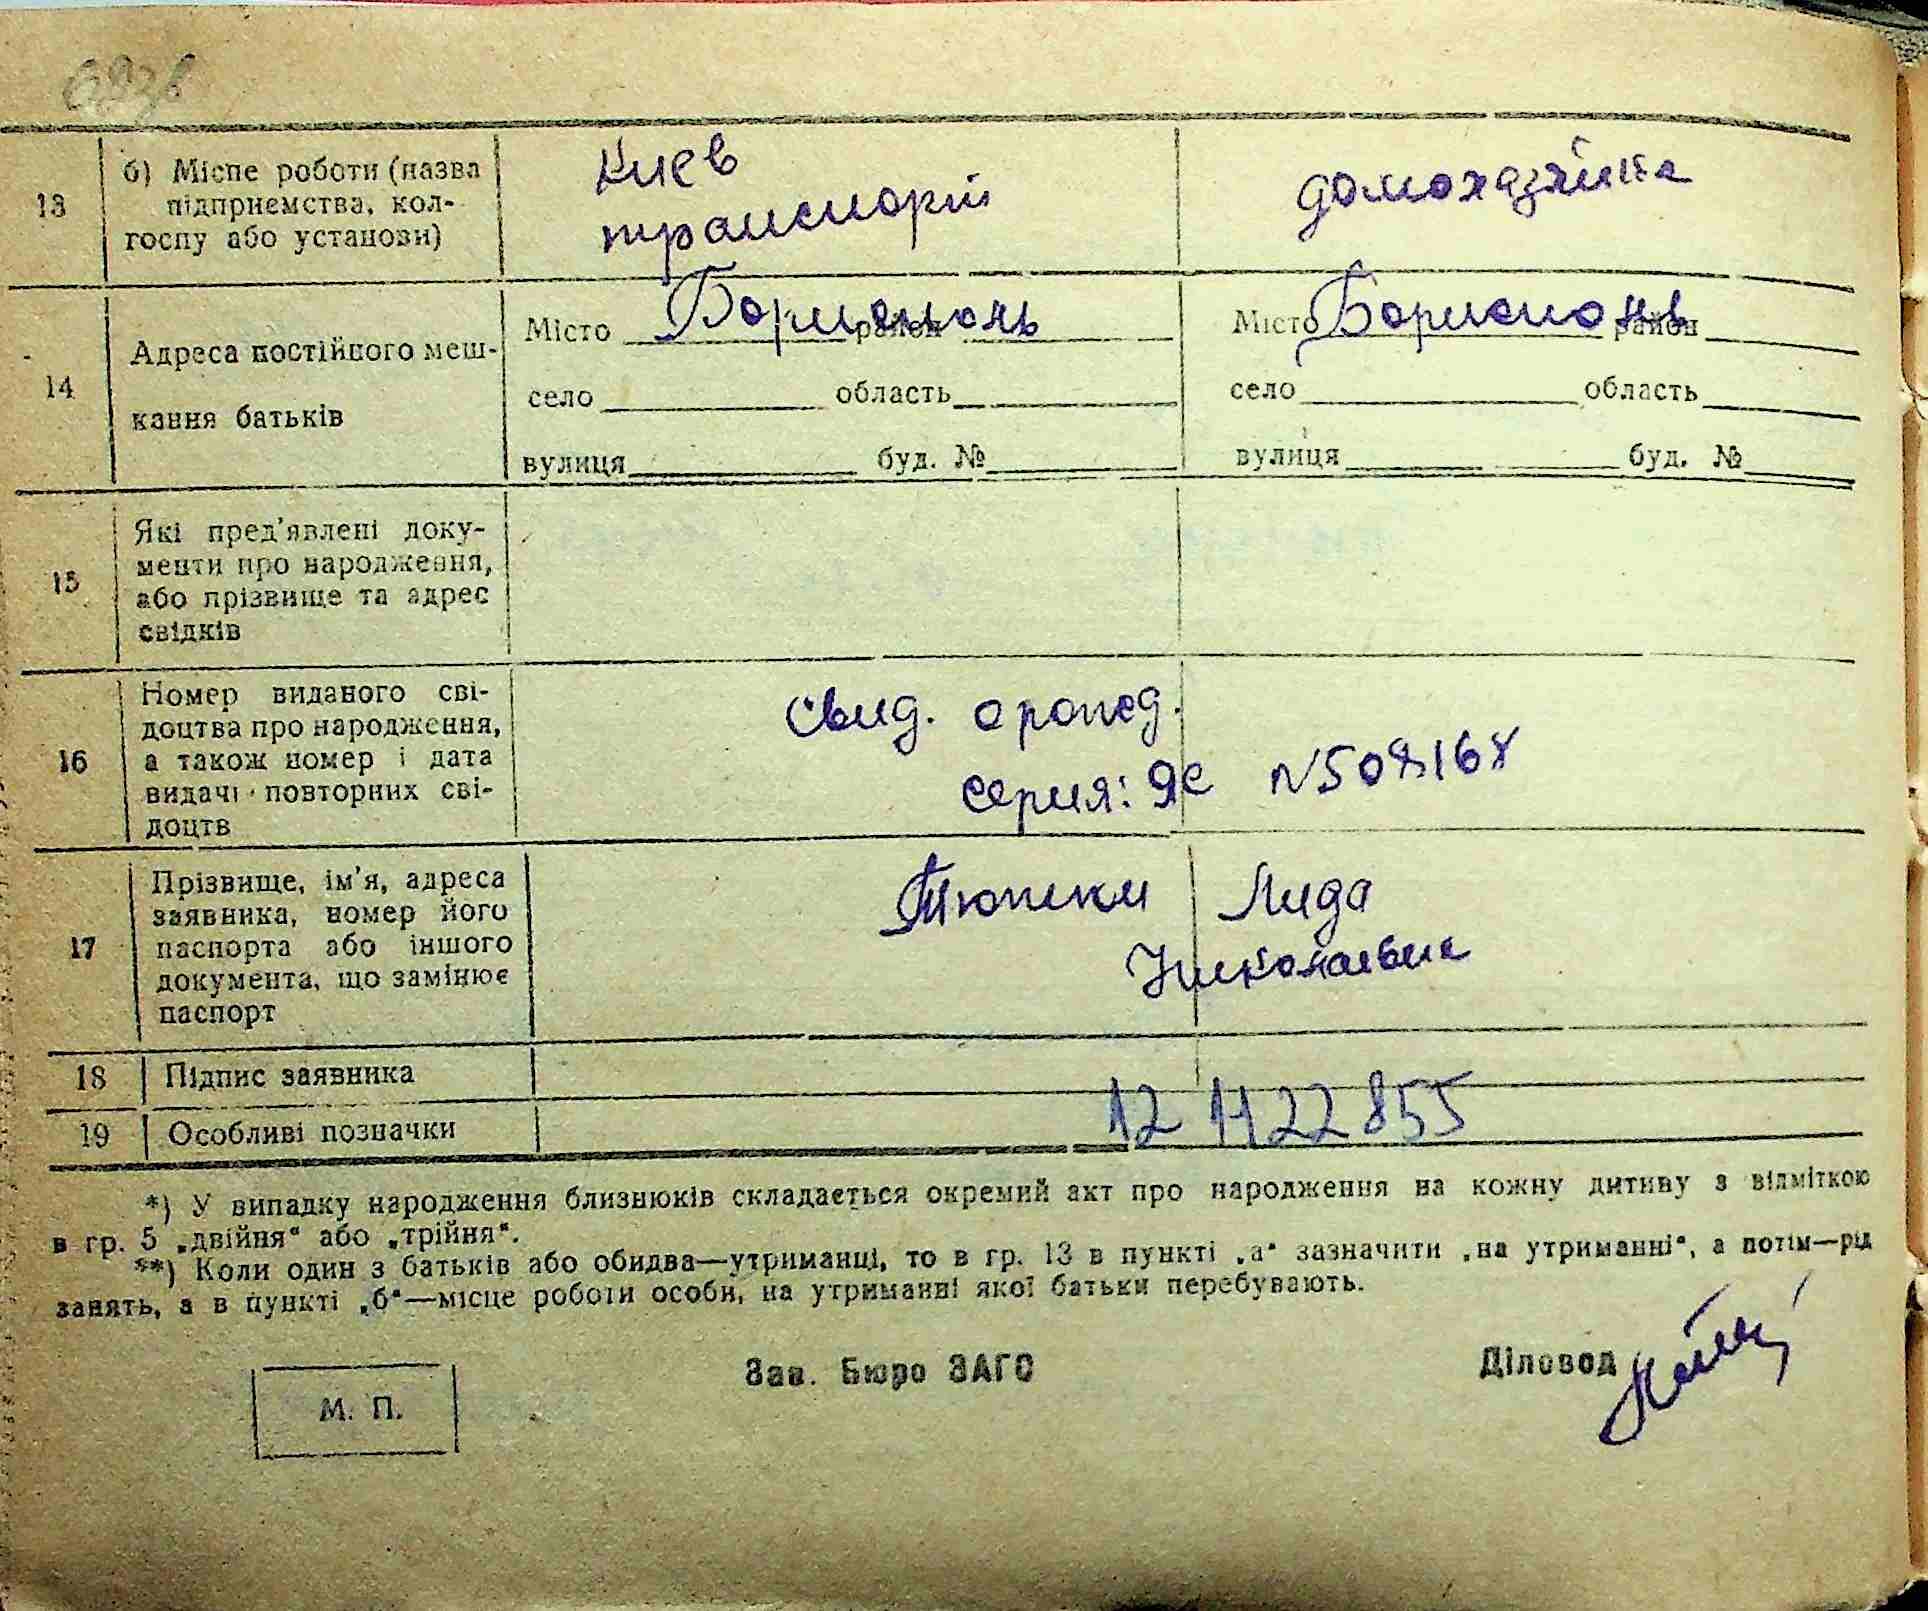 13
б) Місце роботи (назва
підприємства, кол-
госпу або установи)
Киев
транспорт
домохазяйка
14
Адреса постійного меш-
кання батьків
Місто Борисполь район
село область
вулиця буд. №
Місто Борисполь район
село область
вулиця буд. №
15
Які пред'явлені доку-
менти про народження,
або прізвище та адрес
свідків
16
Номер виданого сві-
доцтва про народження,
а також номер і дата
видачі повторних сві-
доцтв
Свид. о рожд.
серия: ЯС N508168
17
Прізвище, ім'я, адреса
заявника, номер його
паспорта або іншого
документа, що замінює
паспорт
Лида
Николаевна
18 Підпис заявника
19 Особливі позначки
12 1122855
*) У випадку народження близнюків складається окремий акт про народження на кожну дитину з відміткою
в гр. 5 „двійня“ або „трійня“.
**) Коли один з батьків або обидва—утриманці, то в гр. 13 в пункті „а“ зазначити „на утриманні“, а потім—рід
занять, а в пункті „б“—місце роботи особи, на утриманні якої батьки перебувають.
М. П.
Зав. Бюро ЗАГС
Діловод